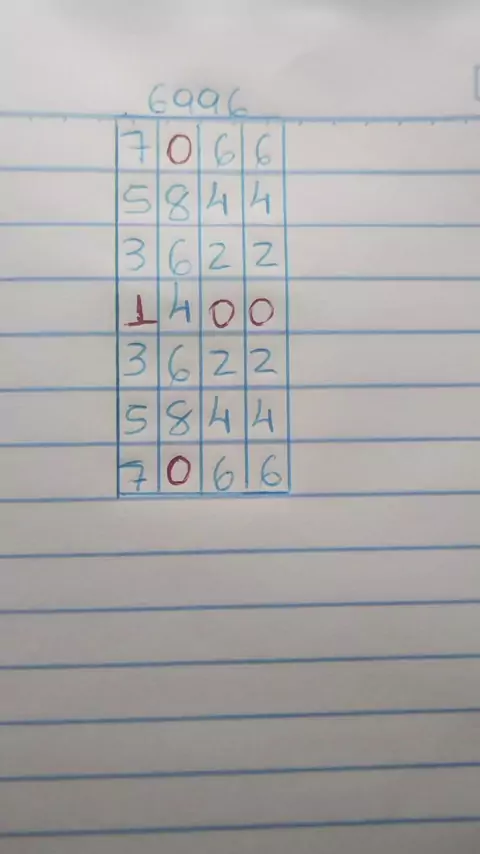 6996
7 0 6 6
5 8 4 4
3 6 2 2
1 4 0 0
3 6 2 2
5 8 4 4
7 0 6 6